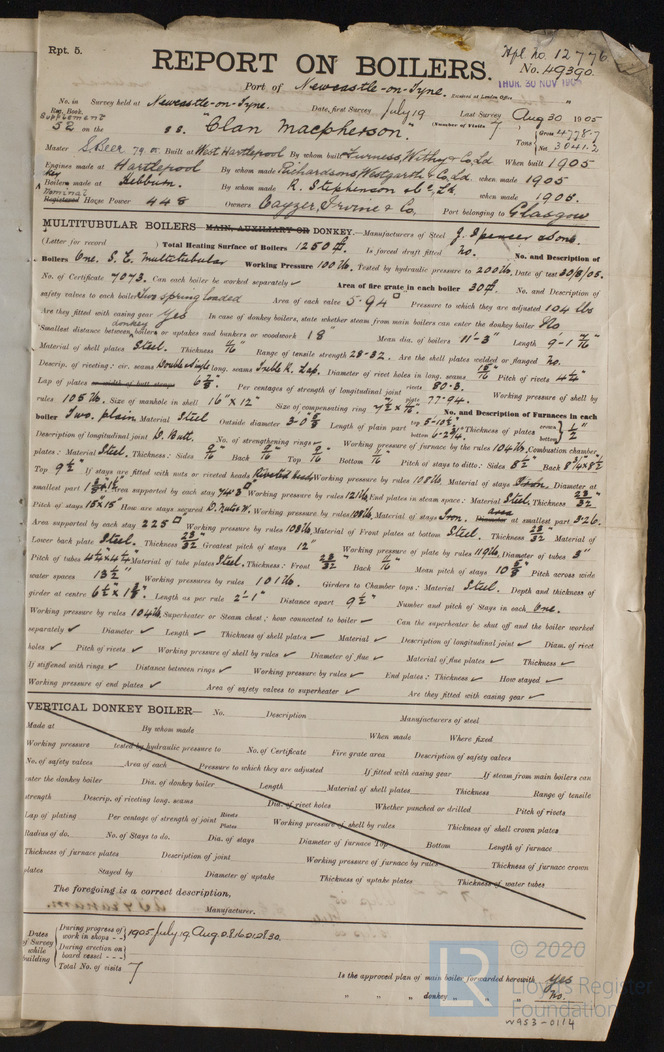 Rpt. 5.
Hpl. No. 12776
REPORT ON BOILERS.
No. 49390
Port of Newcastle-on-Tyne. Received at London Office THUR. 30 NOV 1905
No. in Survey held at Newcastle-on-Tyne. Date, first Survey July 19 Last Survey Aug 30 1905
Reg. Book.
Supplement
52 on the S.S. "Clan Macpherson." (Number of Visits 7) Tons Gross 4778.7 Net 3041.2
Master S. Beer Built at West Hartlepool By whom built Furness, Withy & Co. Ld When built 1905
Engines made at Hartlepool By whom made Richardsons Westgarth & Co. Ld. when made 1905
Boilers made at Hebburn. By whom made R. Stephenson & Co., Ld when made 1905.
Nominal
Registered Horse Power 448 Owners Cayzer, Irvine & Co. Port belonging to Glasgow
MULTITUBULAR BOILERS MAIN, AUXILIARY OR DONKEY.—Manufacturers of Steel J. Spencer & Sons.
(Letter for record ) Total Heating Surface of Boilers 1250 ft. Is forced draft fitted No. No. and Description of
Boilers One. S. E. Multitubular Working Pressure 100 lb. Tested by hydraulic pressure to 200 lb. Date of test 30/8/05.
No. of Certificate 7073. Can each boiler be worked separately ✓ Area of fire grate in each boiler 30 ft. No. and Description of
safety valves to each boiler Two spring loaded Area of each valve 5.94 □" Pressure to which they are adjusted 104 lbs
Are they fitted with easing gear Yes In case of donkey boilers, state whether steam from main boilers can enter the donkey boiler No
Smallest distance between donkey boilers or uptakes and bunkers or woodwork 18" Mean dia. of boilers 11'-3" Length 9'-1 7/16"
Material of shell plates Steel. Thickness 11/16" Range of tensile strength 28-32. Are the shell plates welded or flanged No.
Descrip. of riveting: cir. seams Double & Single long. seams Treble R. Lap. Diameter of rivet holes in long. seams 15/16" Pitch of rivets 4 1/4"
Lap of plates or width of butt straps 6 7/8" Per centages of strength of longitudinal joint rivets 80.3. plate 77.94. Working pressure of shell by
rules 105 lb. Size of manhole in shell 16" x 12" Size of compensating ring 7 1/2" x 11/16". No. and Description of Furnaces in each
boiler Two. plain Material Steel Outside diameter 3-0 5/8" Length of plain part top 5-10 1/2" bottom 6-2 3/4" Thickness of plates crown bottom 1/2"
Description of longitudinal joint D. Butt. No. of strengthening rings ✓ Working pressure of furnace by the rules 104 lb. Combustion chamber
plates: Material Steel. Thickness: Sides 9/16" Back 9/16" Top 9/16" Bottom 11/16" Pitch of stays to ditto: Sides 8 1/2" Back 8 3/4 x 8 1/2"
Top 9 1/2" If stays are fitted with nuts or riveted heads Riveted heads Working pressure by rules 108 lb. Material of stays Iron. Diameter at
smallest part Area supported by each stay 74.3 □" Working pressure by rules 121 lb. End plates in steam space: Material Steel. Thickness 23/32"
Pitch of stays 15" x 15" How are stays secured D. Nuts W. Working pressure by rules 108 lb. Material of stays Iron. Diameter Area at smallest part 3.26.
Area supported by each stay 225 □" Working pressure by rules 108 lb. Material of Front plates at bottom Steel. Thickness 23/32" Material of
Lower back plate Steel. Thickness 23/32" Greatest pitch of stays 12" Working pressure of plate by rules 119 lb. Diameter of tubes 3"
Pitch of tubes 4 1/4" x 4 1/4" Material of tube plates Steel. Thickness: Front 23/32" Back 11/16" Mean pitch of stays 10 5/8" Pitch across wide
water spaces 13 1/2" Working pressures by rules 101 lb. Girders to Chamber tops: Material Steel. Depth and thickness of
girder at centre 6 1/2" x 1 3/8" Length as per rule 2'-1" Distance apart 9 1/2" Number and pitch of Stays in each One.
Working pressure by rules 104 lb. Superheater or Steam chest; how connected to boiler ✓ Can the superheater be shut off and the boiler worked
separately ✓ Diameter ✓ Length ✓ Thickness of shell plates ✓ Material ✓ Description of longitudinal joint ✓ Diam. of rivet
holes ✓ Pitch of rivets ✓ Working pressure of shell by rules ✓ Diameter of flue ✓ Material of flue plates ✓ Thickness ✓
If stiffened with rings ✓ Distance between rings ✓ Working pressure by rules ✓ End plates: Thickness ✓ How stayed ✓
Working pressure of end plates ✓ Area of safety valves to superheater ✓ Are they fitted with easing gear ✓
VERTICAL DONKEY BOILER— No. Description Manufacturers of steel
Made at By whom made When made Where fixed
Working pressure tested by hydraulic pressure to No. of Certificate Fire grate area Description of safety valves
No. of safety valves Area of each Pressure to which they are adjusted If fitted with easing gear If steam from main boilers can
enter the donkey boiler Dia. of donkey boiler Length Material of shell plates Thickness Range of tensile
strength Descrip. of riveting long. seams Dia. of rivet holes Whether punched or drilled Pitch of rivets
Lap of plating Per centage of strength of joint Rivets Plates Working pressure of shell by rules Thickness of shell crown plates
Radius of do. No. of Stays to do. Dia. of stays Diameter of furnace Top Bottom Length of furnace
Thickness of furnace plates Description of joint Working pressure of furnace by rules Thickness of furnace crown
plates Stayed by Diameter of uptake Thickness of uptake plates Thickness of water tubes
The foregoing is a correct description,
Manufacturer.
Dates of Survey while building
During progress of work in shops - - 1905 July 19. Aug. 0.8.16.21.28.30.
During erection on board vessel - - -
Total No. of visits 7
Is the approved plan of main boiler forwarded herewith Yes
" " " donkey " " " No.
© 2020
LR
Lloyd's Register
Foundation
W953-0114